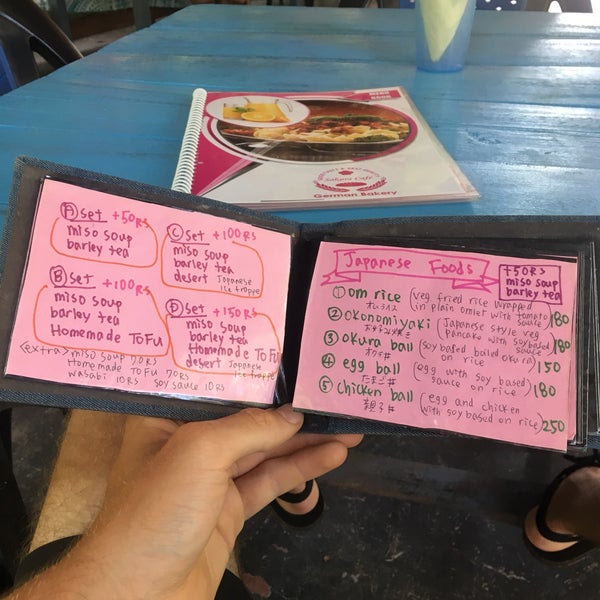 MENU
BOOK
Sakura Cafe
German Bakery
A set +50RS
miso soup
barley tea
C set +100RS
miso soup
barley tea
desert Japanese
ice troppe
B set +100RS
miso soup
barley tea
Homemade TOFU
D set +150RS
miso soup
barley tea
Homemade TOFU
desert Japanese
ice troppe
<extra> miso soup 70RS
Homemade TOFU 70RS
wasabi 10RS soy sauce 10RS
Japanese Foods
+50RS
miso soup
barley tea
① om rice (veg fried rice wrapped in plain omlet with tomato sauce) 180
オムライス
② okonomiyaki (Japanese style veg pancake with soy based sauce) 180
お好み焼き
③ okura ball (soy based boiled okura on rice) 150
オクラ丼
④ egg ball (egg with soy based sauce on rice) 180
たまご丼
⑤ chicken ball (egg and chicken with soy based on rice) 250
親子丼